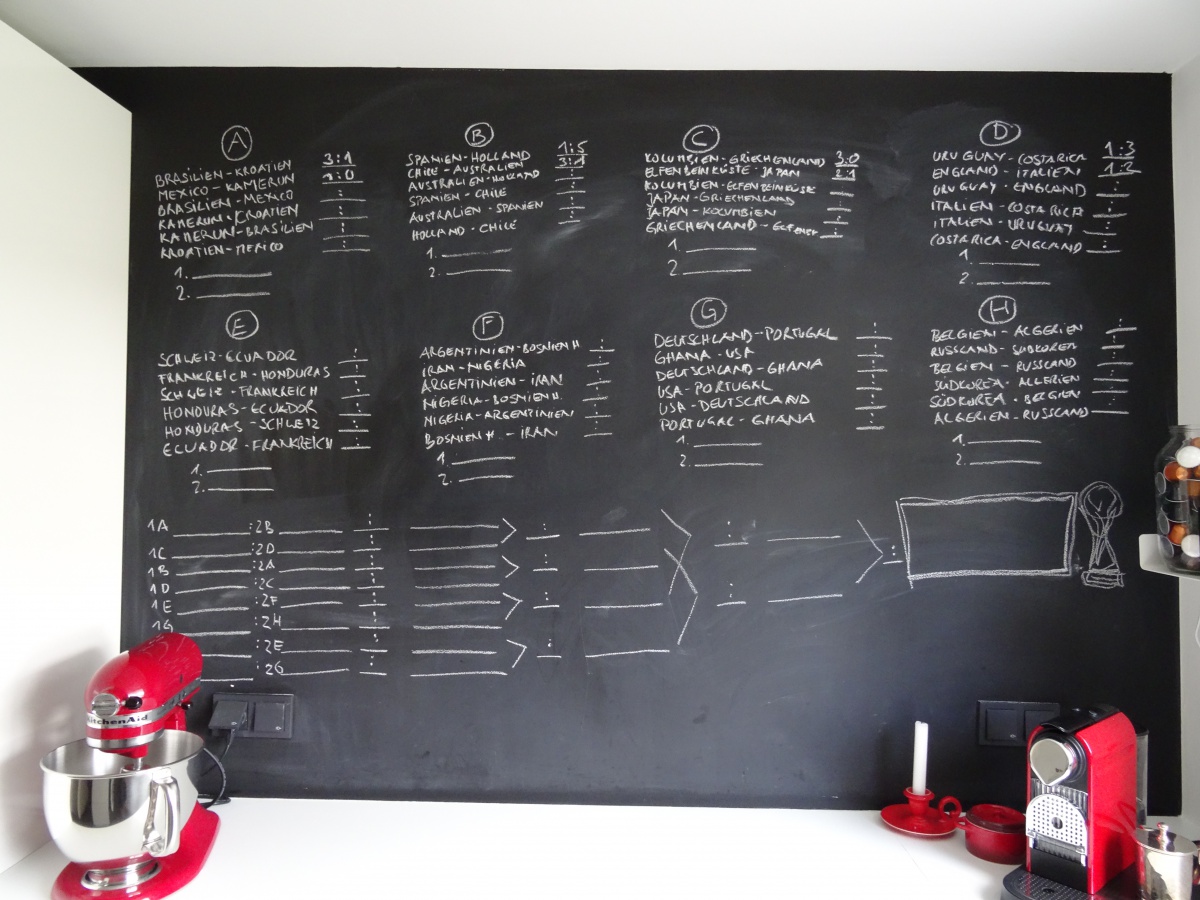 A
BRASILIEN - KROATIEN 3:1
MEXICO - KAMERUN 1:0
BRASILIEN - MEXICO :
KAMERUN - KROATIEN :
KAMERUN - BRASILIEN :
KROATIEN - MEXICO :
1.
2.
B
SPANIEN - HOLLAND 1:5
CHILE - AUSTRALIEN 3:1
AUSTRALIEN - HOLLAND :
SPANIEN - CHILE :
AUSTRALIEN - SPANIEN :
HOLLAND - CHILE :
1.
2.
C
KOLUMBIEN - GRIECHENLAND 3:0
ELFENBEINKÜSTE - JAPAN 2:1
KOLUMBIEN - ELFENBEINKÜSTE :
JAPAN - GRIECHENLAND :
JAPAN - KOLUMBIEN :
GRIECHENLAND - :
1.
2.
D
URUGUAY - COSTARICA 1:3
ENGLAND - ITALIEN 1:2
URUGUAY - ENGLAND :
ITALIEN - COSTARICA :
ITALIEN - URUGUAY :
COSTARICA - ENGLAND :
1.
2.
E
SCHWEIZ - ECUADOR :
FRANKREICH - HONDURAS :
SCHWEIZ - FRANKREICH :
HONDURAS - ECUADOR :
HONDURAS - SCHWEIZ :
ECUADOR - FRANKREICH :
1.
2.
F
ARGENTINIEN - BOSNIEN H :
IRAN - NIGERIA :
ARGENTINIEN - IRAN :
NIGERIA - BOSNIEN H. :
NIGERIA - ARGENTINIEN :
BOSNIEN H - IRAN :
1.
2.
G
DEUTSCHLAND - PORTUGAL :
GHANA - USA :
DEUTSCHLAND - GHANA :
USA - PORTUGAL :
USA - DEUTSCHLAND :
PORTUGAL - GHANA :
1.
2.
H
BELGIEN - ALGERIEN :
RUSSLAND - SÜDKOREA :
BELGIEN - RUSSLAND :
SÜDKOREA - ALGERIEN :
SÜDKOREA - BELGIEN :
ALGERIEN - RUSSLAND :
1.
2.
1A :2B :
1C :2D :
1B :2A :
1D :2C :
1E :2F :
1G :2H :
:2E :
:2G :
KitchenAid